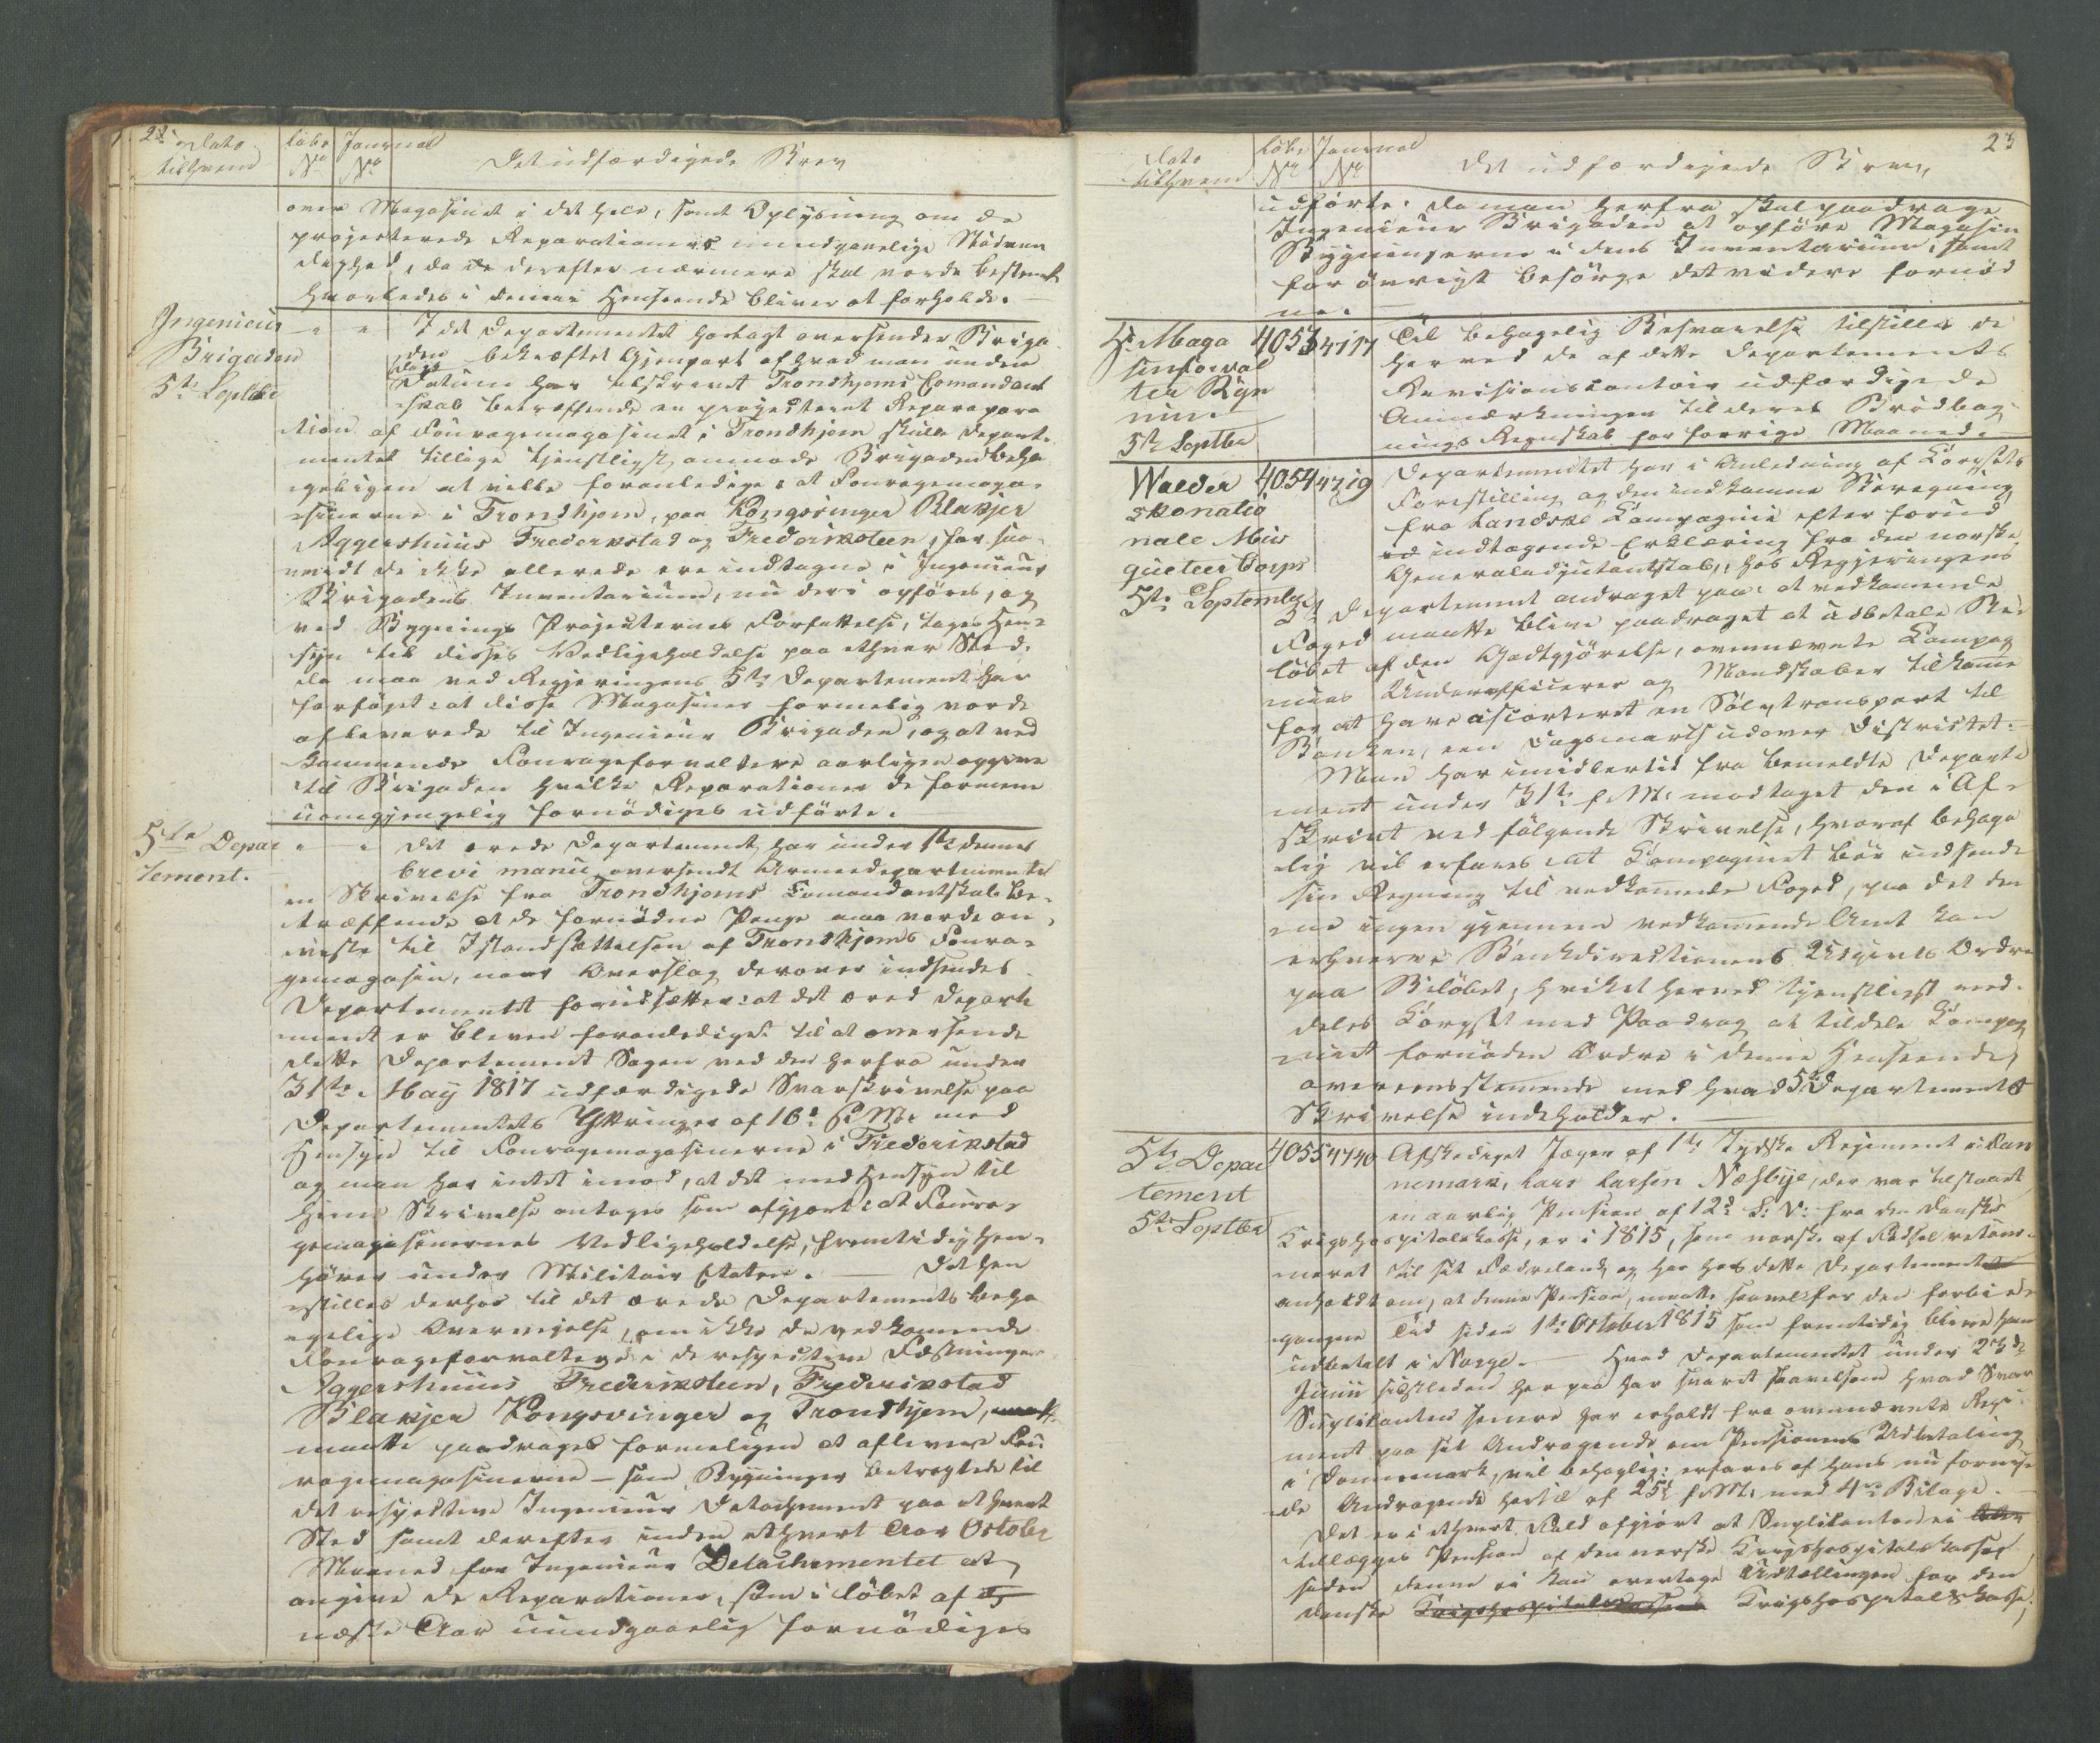 22
Dato
tilhvem
Løbe
No
Journal
No
Det udfærdigede Brev
over Magasinet i det hele, samt Oplysning om de
projecterede Reparationers uundgaaelige Nødven
dighed, da de derefter nærmere skal vorde bestemt
hvorledes i denne Henseende bliver at forholde.
Ingenieur
Brigaden
5te Septbr
" " I det Departementet hoslagt oversender Briga
den bekræftet Gjenpart af hvad man under
Dags Datum har tilskrevet Trondhjems Comandant
skab betræffende en projecteret Repara para
tion af Fouragemagasinet i Trondhjem skulle Departe
mentet tillige tjenstligst anmode Brigaden beha
geligen at ville foranledige: at Fouragemaga
sinerne i Trondhjem, paa Kongsvinger Blakjer
Aggershuus Frederikstad og Frederiksteen, for saa
vidt de ikke allerede ere indtagne i Ingenieur
Brigadens Inventarium, nu deri opføres, og
ved Bygnings Projecternes Forfattelse, tages Hen
syn til disses Vedligeholdelse paa ethver Sted,
da man ved Regjeringens 5te Departement har
forføjet: at disse Magasiner formelig vorde
afleverede til Ingenieur Brigaden, og at ved
kommende Fourageforvaltere aarligen opgive
til Brigaden hvilke Reparationer de formene
uomgjængelig fornødiges udførte.
5te Depar
tement.
" " Det ærede Departement har under 1te dennes
brevi manu oversendt Armeedepartementet
en Skrivelse fra Trondhjems Comandantskab be
træffende at de fornødne Penge maa vorde an
viiste til Istandsættelsen af Trondhjems Foura
gemagasin, naar Overslag derover indsendes
Departementet forudsætter: at det ærede Departe
ment er bleven foranlediget til at oversende
dette Departement Sagen ved den herfra under
31te May 1817 udfærdigede Svarskrivelse paa
Departementets Yttringer af 16d s. M. med
Hensyn til Fouragemagasinerne i Frederikstad
og man har intet imod, at det med Hensyn til
hiin Skrivelse antages som afgjort: at Foura
gemagasinernes Vedligeholdelse, fremtidig hen
hører under Militair Etaten. — Det hen
stilles derhos til det ærede Departements beha
gelige Overvejelse, om ikke de vedkommende
Fourageforvaltere i de respective Fæstninger
Aggershuus Frederiksteen, Frederikstad
Blakjer Kongsvinger og Trondhjem,
maatte paadrages formeligen at aflevere Fou
ragemagasinerne — som Bygninger betragtede til
det respective Ingenieur Detachement paa ethvert
Sted samt derefter inden ethvert Aar October
Maaned for Ingenieur Detachementet at
angive de Reparationer, som i Løbet af
næste Aar uundgaaelig fornødiges
23
Dato
tilhvem
Løbe
No
Journal
No
Det udfærdigede Brev,
udførte: da man herfra skal paadrage
Ingenieur Brigaden at opføre Magasin
Bygningerne i dens Inventarium, samt
for øvrigt besørge det videre fornød
ne.
Hr Maga
sinforval
ter Ryn
ning
5te Septbr
4053 4717 Til behagelig Besvarelse tilstilles De
herved de af dette Departements
Revisionscontoir udfærdigede
Anmærkninger til deres Brødbag
nings Regnskab for forrige Maaned.
Walder
skenatio
nale Mus
queteer Corps
5te September
4054 4719 Departementet har i Anledning af Corpsets
Forestilling og den indkomne Beregning
fra Landske Compagnie efter forud
indtagende Erklæring fra den norske
Generaladjutantstab, hos Regjeringens
3d Departement andraget paa: at vedkommende
Foged maatte blive paadraget at udbetale Be
løbet af den Godtgjørelse, ovennævnte Compag
nies Underofficerer og Mandskaber tilkomme
for at have escorteret en Sølvtransport til
Banken, een Dagsmarch udover Districtet.
Man har imidlertid fra bemeldte Departe
ment under 31te f. M. modtaget den i Af
skrivt ved følgende Skrivelse, hvoraf behage
lig vil erfares: at Compagniet bør indsende
sin Regning til vedkommende Foged, paa det den
ne igen gjennem vedkommende Amt kan
erhverve Bankdirectionens Udgivts Ordre
paa Beløbet; hvilket herved tjenstligst med
deles Corpset med Paadrag at tildele Compag
niet fornøden Ordre i denne Henseende,
overeensstemmende med hvad 5te Departements
Skrivelse indeholder.
5te Depar
tement
5te Septbr
4055 4740 Afskediget Jæger af 1te Jydske Regiment i Dan
nemark, Lars Larsen Næsbye, der var tilstaaet
en aarlig Pension af 12d S. V. fra den danske
Krigshospitalskasse, er i 1815, som norsk af Fødsel retour
neret til sit Fædreland og har hos dette Departement
anholdt om, at denne Pension, maatte saavel for den forbi
gangne Tid siden 1te October 1815 som fremtidig blive ham
udbetalt i Norge. — Hvad Departementet under 23de
Junii sidstleden herpaa har svaret saavelsom hvad Svar
Suplikanten senere har erholdt fra ovennævnte Regi
ment paa sit Andragende om Pensionens Udbetaling
i Dannemark, vil behagelig: erfares af hans nu fornye
de Andragende hertil af 25d f. M. med 4re Bilage.
Det er i ethvert Fald afgjort at Suplikanten ei
tillægges Pension af den norske Krigshospitalskasse
siden denne ei kan overtage Udtællingen for den
danske Krigshospitalskasse,